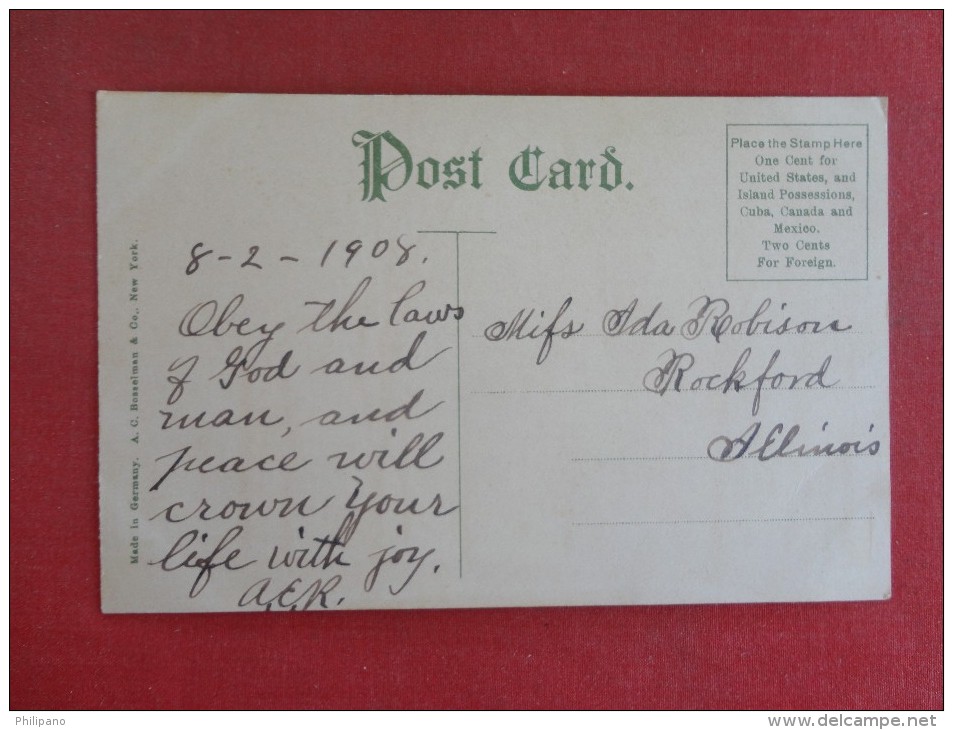 Post Card.
Place the Stamp Here
One Cent for
United States, and
Island Possessions,
Cuba, Canada and
Mexico.
Two Cents
For Foreign.
8-2-1908.
Obey the laws
of God and
man, and
peace will
crown your
life with joy.
A.E.R.
Miſs Ida Robison
Rockford
Illinois
Made in Germany. A. C. Bosselman & Co., New York.
Philipano
www.delcampe.net